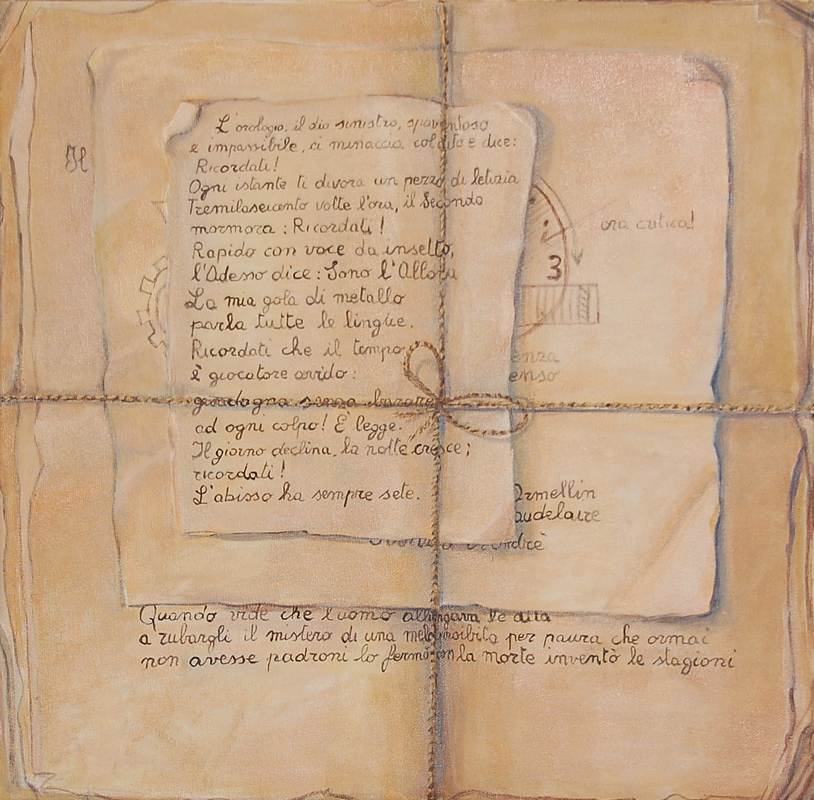 Il
L'orologio, il dio sinistro, spaventoso
e impassibile, ci minaccia col dito e dice:
Ricordati!
Ogni istante ti divora un pezzo di letizia
Tremilaseicento volte l'ora, il Secondo
mormora: Ricordati!
Rapido con voce da insetto,
l'Adesso dice: Sono l'Allora
La mia gola di metallo
parla tutte le lingue.
Ricordati che il tempo
è giocatore avido:
guadagna senza barare
ad ogni colpo! È legge.
Il giorno declina, la notte cresce;
ricordati!
L'abisso ha sempre sete.
ora critica!
3
enza
enso
Ormellin
audelaire
Quando vide che l'uomo allungava le dita
a rubargli il mistero di una mela proibita per paura che ormai
non avesse padroni lo fermò con la morte inventò le stagioni